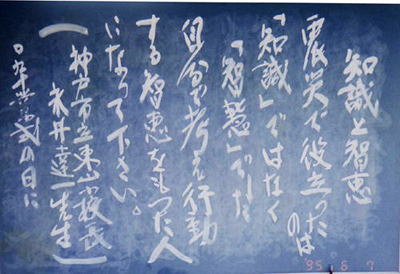 知識と智恵
震災で役立ったのは
「知識」ではなく
「智慧」でした
自分で考え行動
する智恵をもった人
になって下さい。
(神戸市立東山小校長
永井遠一先生)
の日に
95 6 7